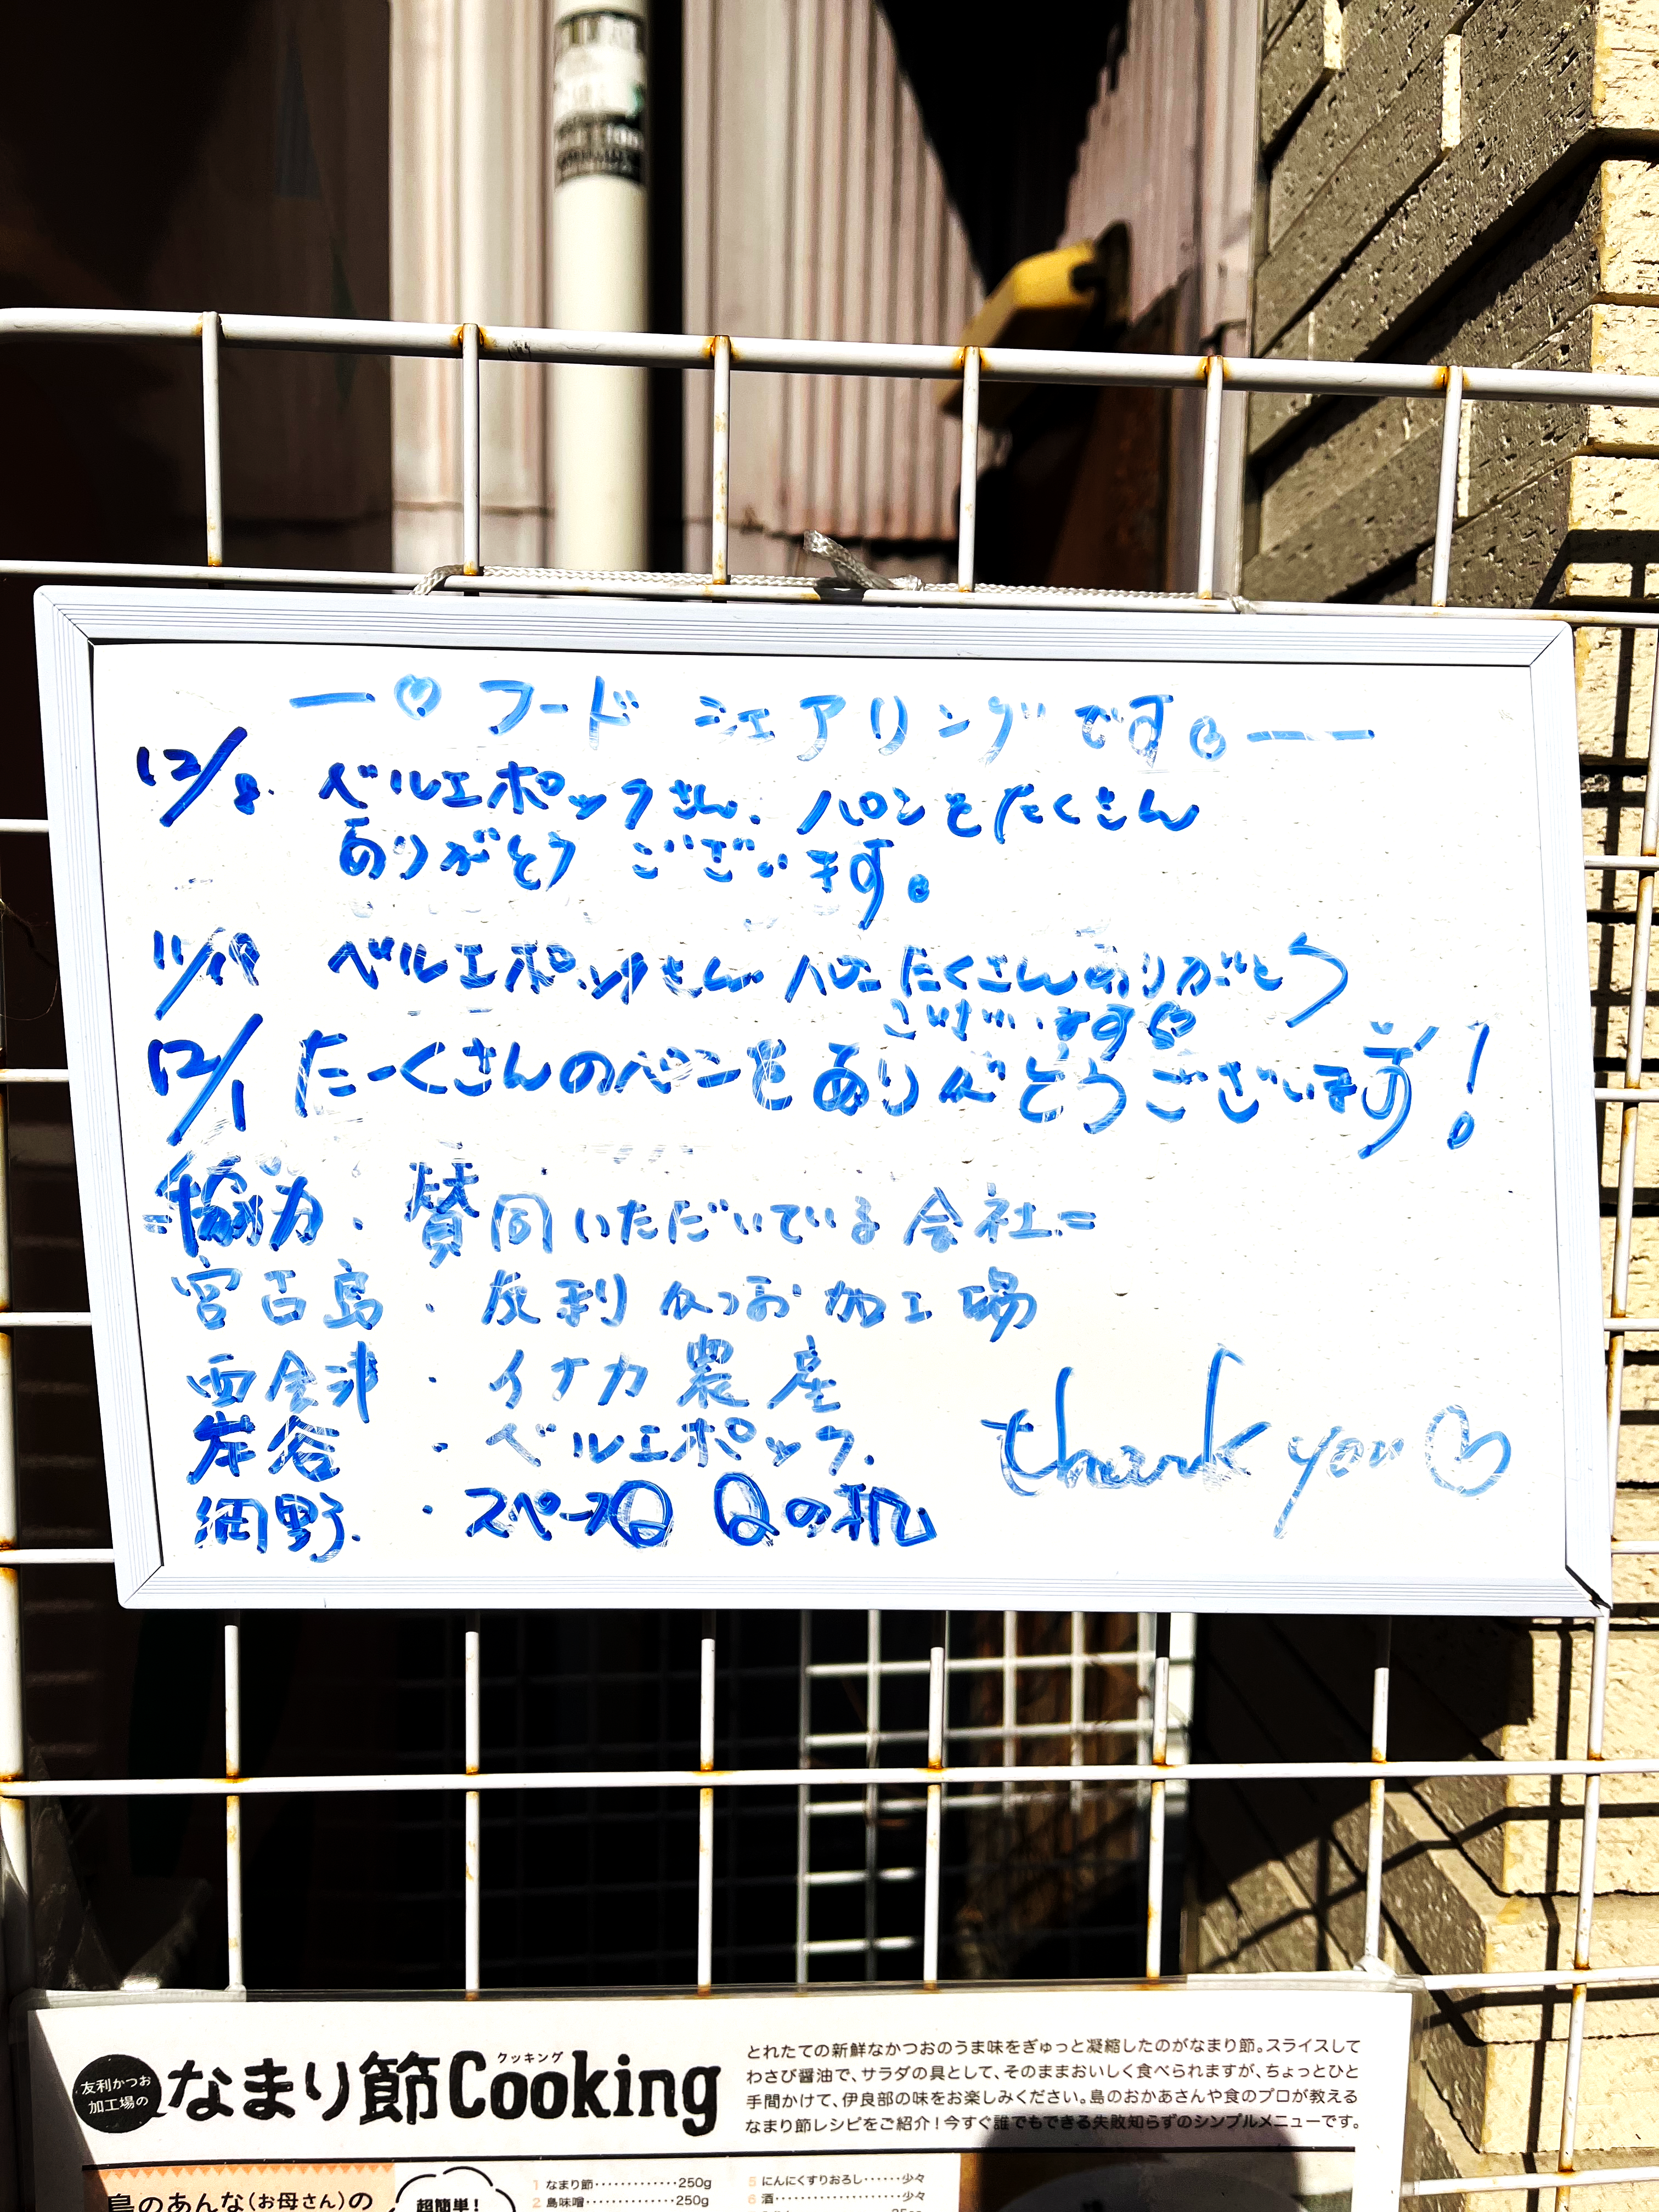 ー♡ フードシェアリングです。ーー
12/8. ベルエポックさん、パンをたくさん
ありがとう ございます。
11/19 ベルエポックさん パンたくさんありがとう
ございます♡
12/1 たーくさんのパンを ありがとうございます!
=協力・賛同いただいている会社=
宮古島 ・ 友利かつお加工場
西会津 ・ イナカ農産
岸谷 ・ ベルエポック.
網野. ・ スペースQ Qの机
thank you♡
友利かつお
加工場の
なまり節Cooking
クッキング
とれたての新鮮なかつおのうま味をぎゅっと凝縮したのがなまり節。スライスして
わさび醤油で、サラダの具として、そのままおいしく食べられますが、ちょっとひと
手間かけて、伊良部の味をお楽しみください。島のおかあさんや食のプロが教える
なまり節レシピをご紹介!今すぐ誰でもできる失敗知らずのシンプルメニューです。
島のあんな(お母さん)の
超簡単!
1 なまり節‥‥‥‥‥‥250g
2 島味噌‥‥‥‥‥‥250g
5 にんにくすりおろし‥‥‥少々
6 酒‥‥‥‥‥‥少々